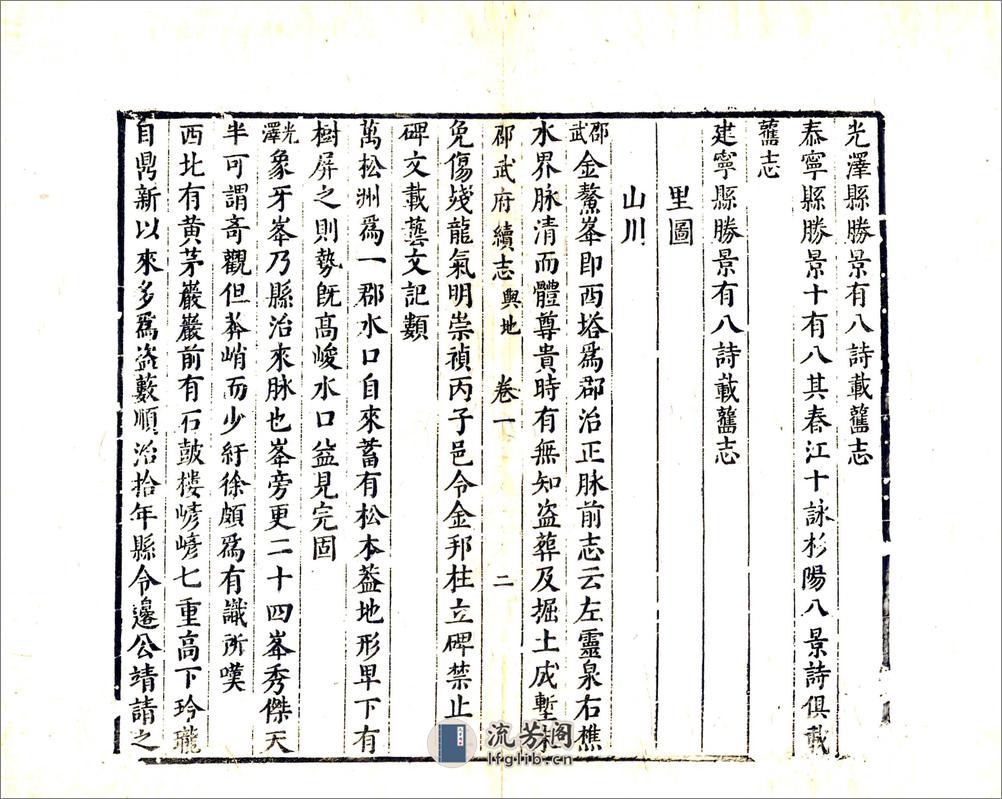 光澤縣勝景有八詩載舊志
泰寧縣勝景十有八其春江十詠杉陽八景詩俱載
舊志
建寧縣勝景有八詩載舊志
里圖
山川
邵武金鰲峯即西塔爲郡治正脉前志云左靈泉右樵
水界脉清而體尊貴時有無知盗葬及掘土成塹
邵武府續志 輿地 卷一 二
免傷殘龍氣明崇禎丙子邑令金邦柱立碑禁止
碑文載藝文記類
萬松洲爲一郡水口自來蓄有松木葢地形卑下有
樹屏之則勢旣高峻水口益見完固
光澤象牙峯乃縣治來脉也峯旁更二十四峯秀傑天
半可謂竒觀但莾峭而少紆徐頗爲有識所嘆
西北有黄茅巖巖前有石鼓楼嵾嵾七重高下玲瓏
自鼎新以來多爲盗藪順治拾年縣令邊公靖請之
流芳阁
lfglib.cn